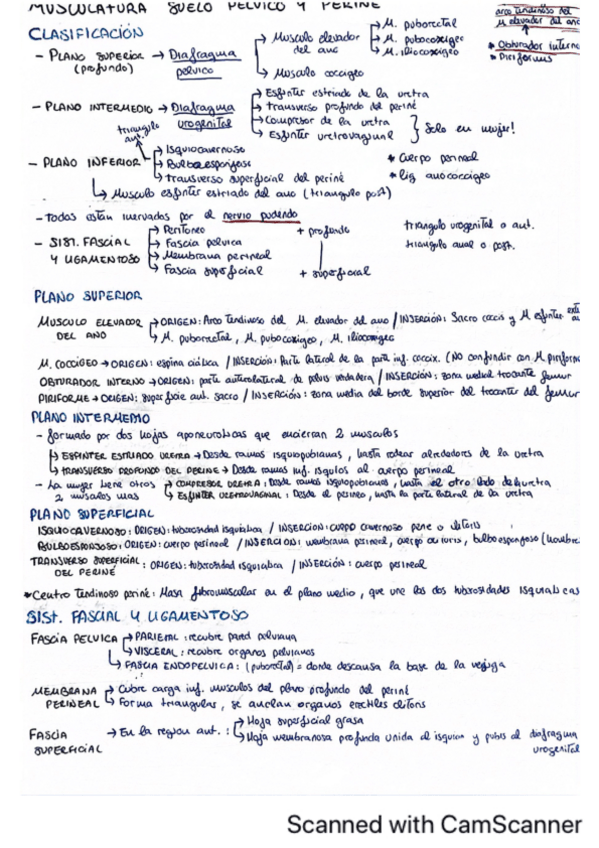 MUSCULATURA SUELO PELVICO Y PERINE
arco tendinoso del
M. elevador del ano
CLASIFICACIÓN
- PLANO SUPERIOR → Diafragma
(profundo) pelvico
→ Musculo elevador
del ano
→ M. puborectal
→ M. pubocoxigeo
→ M. iliocoxigeo
→ Musculo coccigeo
* Obturador interno
* Piriformis
- PLANO INTERMEDIO → Diafragma
urogenital
→ Esfinter estriado de la uretra
→ transverso profundo del periné
→ Compresor de la uretra
→ Esfinter uretrovaginal
} Solo en mujer!
triangulo
ant.
- PLANO INFERIOR
→ Isquiocavernoso
→ Bulboesponjoso
→ transverso superficial del periné
* Cuerpo perineal
* lig anococcigeo
→ Musculo esfinter estriado del ano (triangulo post)
- Todos estan inervados por el nervio pudendo
- SIST. FASCIAL
Y LIGAMENTOSO
→ Peritoneo
→ Fascia pelvica
→ Membrana perineal
→ Fascia superficial
+ profundo
+ superficial
triangulo urogenital o ant.
triangulo anal o post.
PLANO SUPERIOR
MUSCULO ELEVADOR
DEL ANO
→ ORIGEN: Arco tendinoso del M. elevador del ano / INSERCIÓN: Sacro coccis y M esfinter
→ M. puborrectal, M. pubocoxigeo, M. iliocoxigeo
M. COCCIGEO → ORIGEN: espina ciática / INSERCIÓN: Parte lateral de la parte inf. coccix. (NO confundir con M piriforme
OBTURADOR INTERNO → ORIGEN: parte anterolateral de pelvis verdadera / INSERCIÓN: zona medial trocante femur
PIRIFORME → ORIGEN: superficie ant. sacro / INSERCIÓN: zona media del borde superior del trocanter del femur
PLANO INTERMEDIO
- formado por dos hojas aponeuroticas que encierran 2 musculos
→ ESFINTER ESTRIADO URETRA → Desde ramas isquiopubianas, hasta rodear alrededores de la uretra
→ TRANSVERSO PROFUNDO DEL PERINE → Desde ramas inf. isquios al cuerpo perineal
- La mujer tiene otros
2 musculos mas
→ COMPRESOR URETRA: Desde ramas isquiopubianas, hasta el otro lado de uretra
→ ESFINTER URETROVAGINAL: Desde el perineo, hasta la parte lateral de la uretra
PLANO SUPERFICIAL
ISQUIOCAVERNOSO: ORIGEN: tuberosidad isquiatica / INSERCION: cuerpo cavernoso pene o clitoris
BULBOESPONJOSO: ORIGEN: cuerpo perineal / INSERCION: membrana perineal, cuerpo clitoris, bulbo esponjoso (hombre
TRANSVERSO SUPERFICIAL
DEL PERINÉ
: ORIGEN: tuberosidad isquiatica / INSERCIÓN: cuerpo perineal
* Centro tendinoso periné: Masa fibromuscular en el plano medio, que une las dos tuberosidades isquiaticas
SIST. FASCIAL Y LIGAMENTOSO
FASCIA PELVICA
→ PARIETAL: recubre pared pelviana
→ VISCERAL: recubre organos pelvianos
→ FASCIA ENDOPELVICA: (puborectal) = donde descansa la base de la vejiga
MEMBRANA
PERINEAL
→ Cubre carga inf. musculos del plano profundo del periné
→ Forma triangular, se anclan organos erectiles clitoris
FASCIA
SUPERFICIAL
→ En la region ant.:
→ Hoja superficial grasa
→ Hoja membranosa profunda unida al isquion y pubis al diafragma
urogenital
Scanned with CamScanner